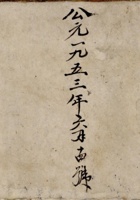 公元一九五三年六月號